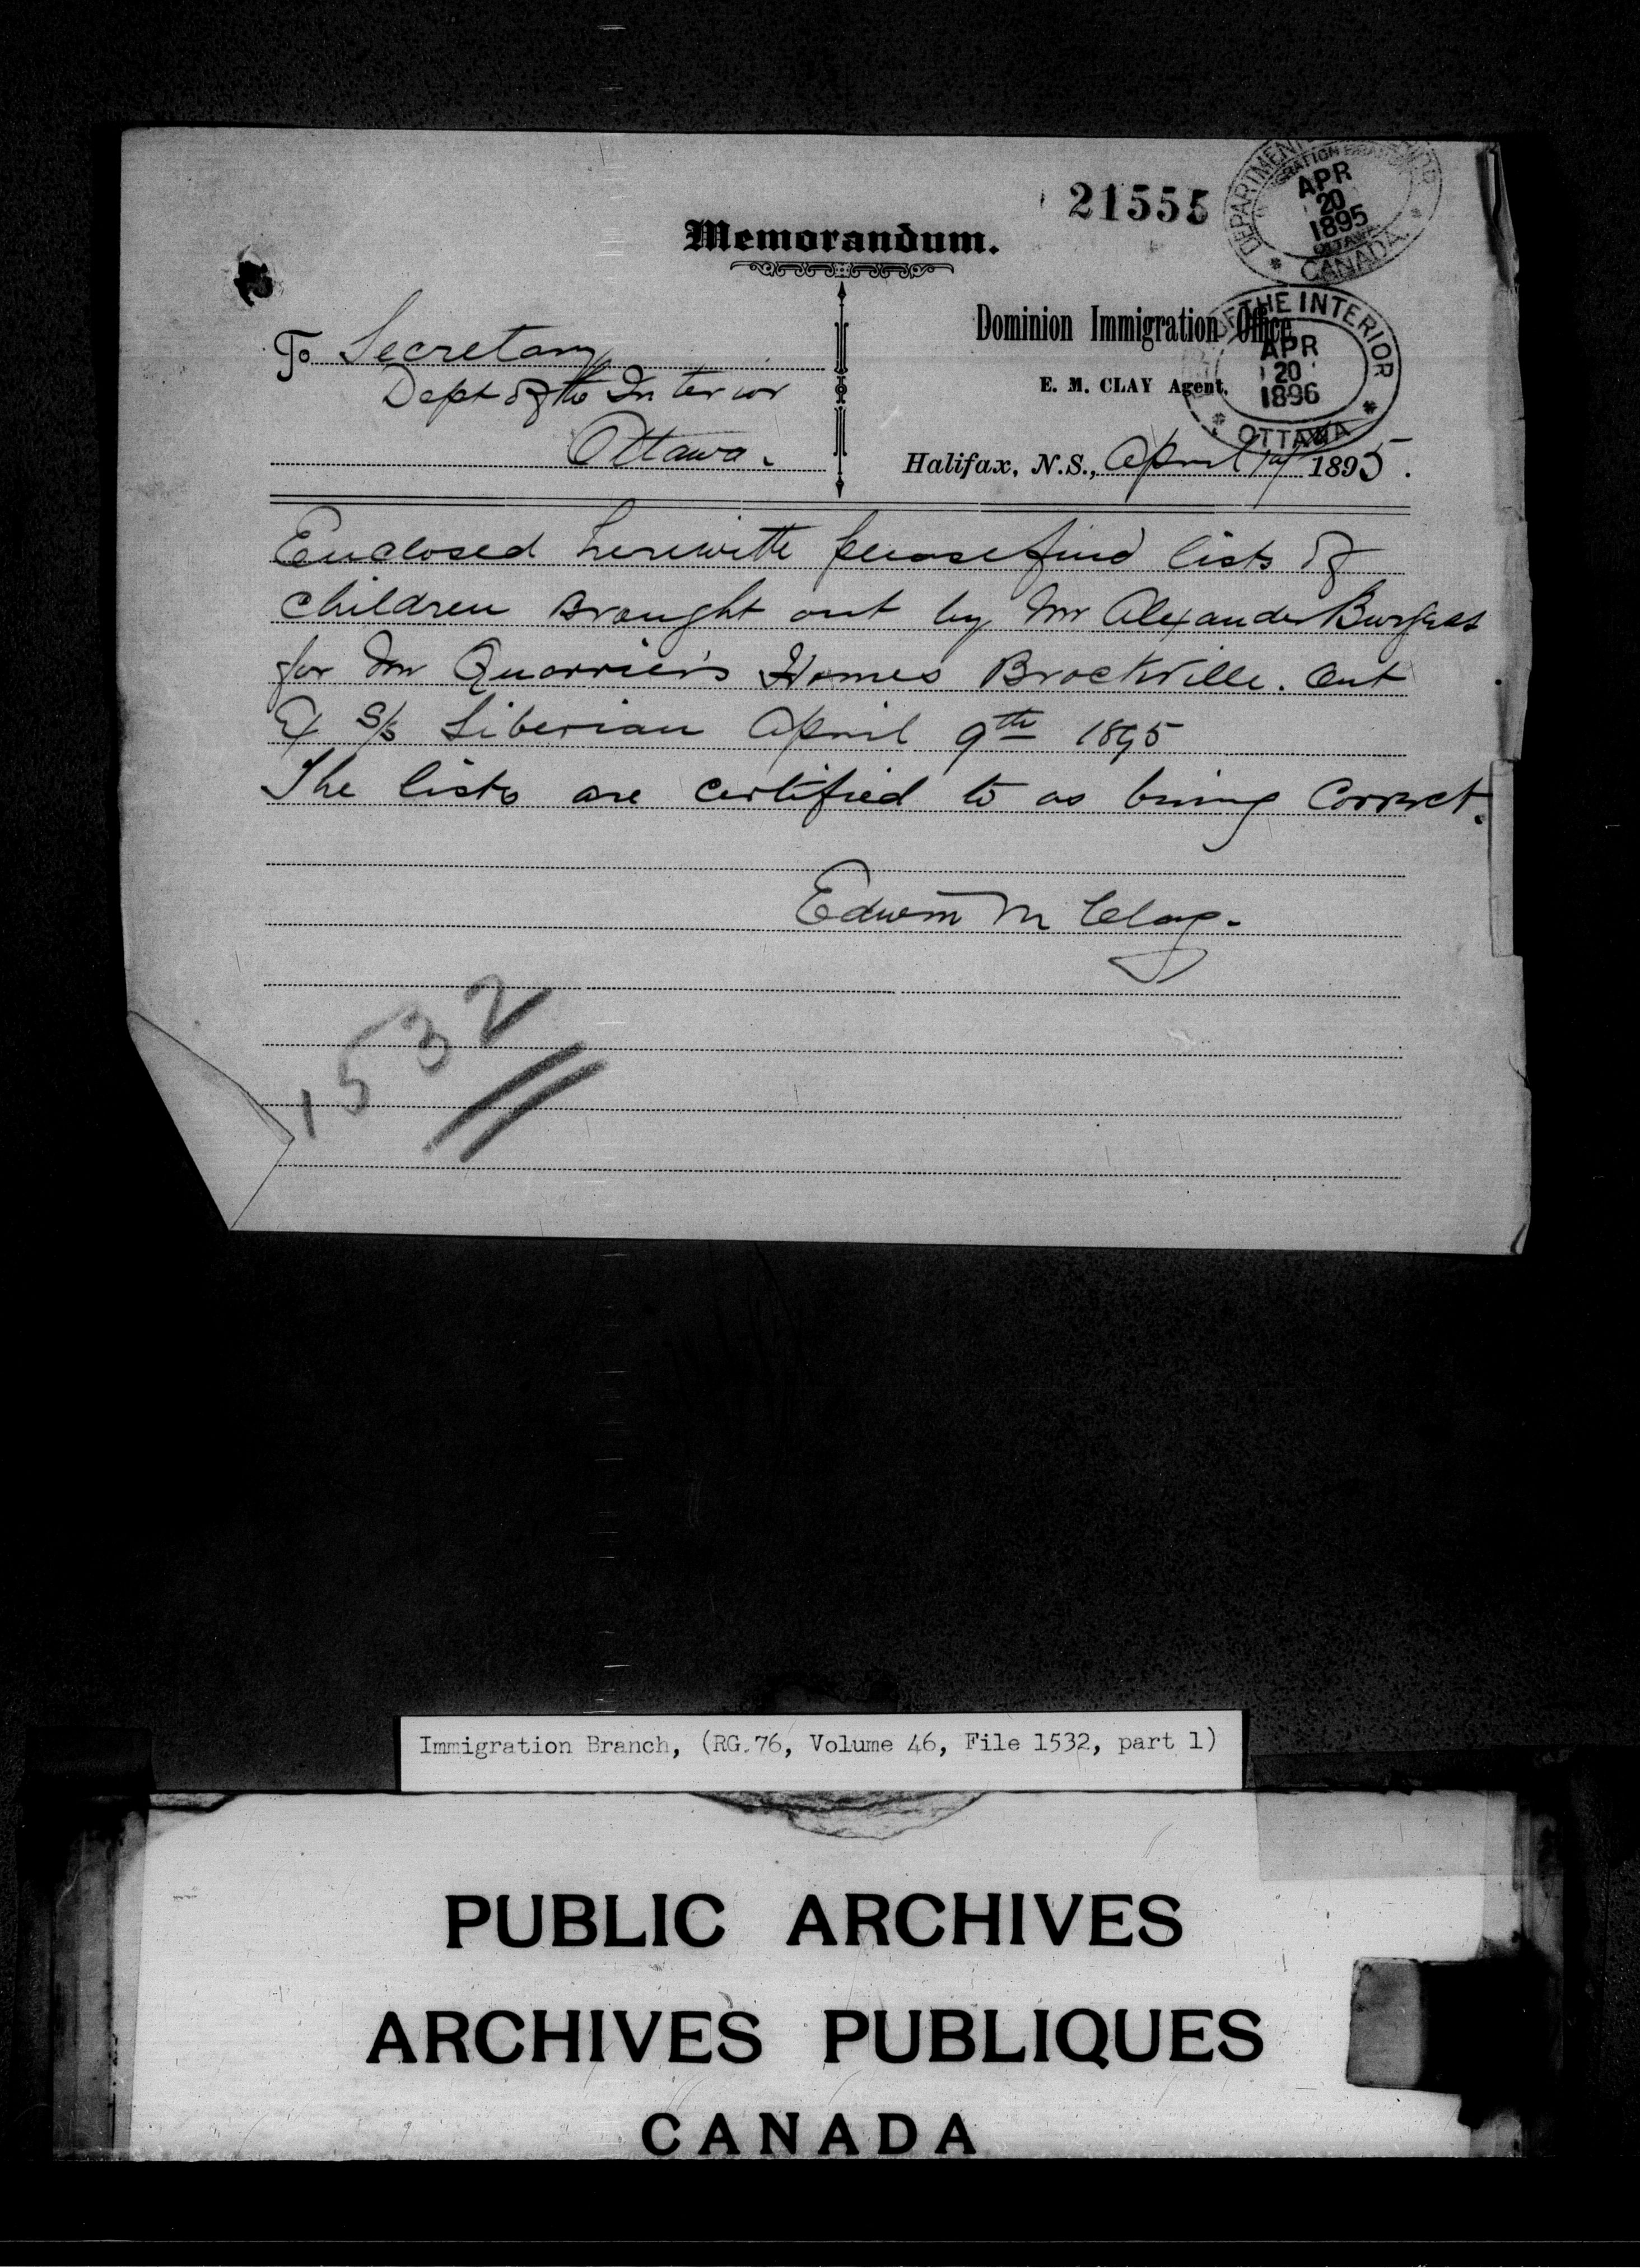 21555
DEPARTMENT
APR
20
1895
OTTAWA
CANADA
Memorandum.
Dominion Immigration Office
E. M. CLAY Agent.
OF THE INTERIOR
APR
20
1896
OTTAWA
To Secretary
Dept of the Interior
Ottawa.
Halifax, N.S., April 1895.
Enclosed herewith please find lists of
children Brought out by Mr Alexander Burgess
for Mr Quarrier's Homes Brockville. Out
Ex S/S Siberian April 9th 1895
The lists are certified to as being Correct.
Edwin M Clay.
1532
Immigration Branch, (RG.76, Volume 46, File 1532, part 1)
PUBLIC ARCHIVES
ARCHIVES PUBLIQUES
CANADA